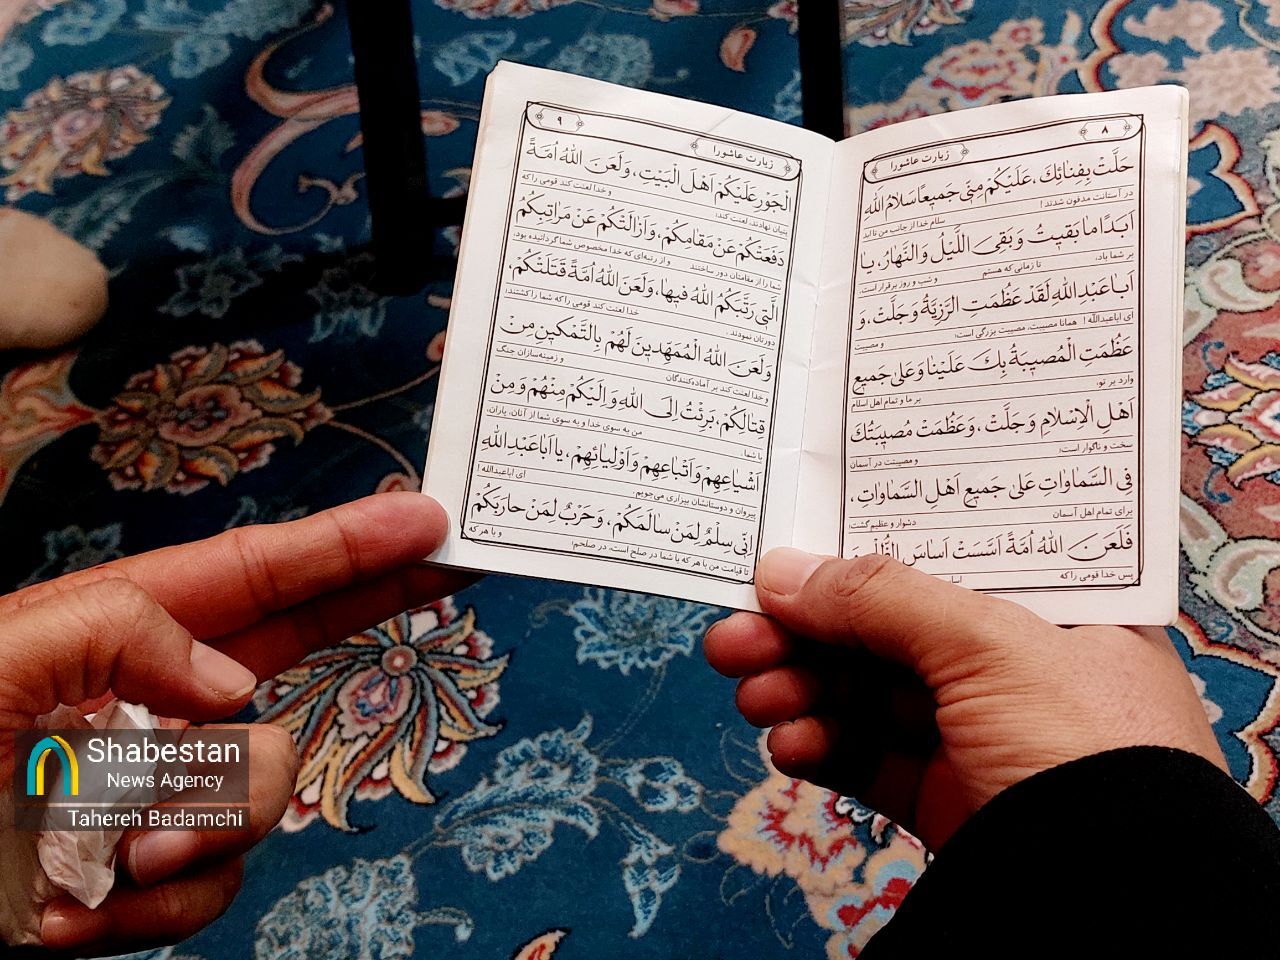 ۸
زیارت عاشورا
حَلَّتْ بِفِنٰائِكَ، عَلَيْكُمْ مِنّى جَميعًا سَلامُ اللهِ
در آستانت مدفون شدند! سلام خدا از جانب من تا ابد
اَبَدًا ما بَقيتُ وَ بَقِىَ اللَّيْلُ وَالنَّهارُ، يا
بر شما باد، تا زمانی که هستم و شب و روز برقرار است.
اَبا عَبْدِ اللهِ لَقَدْ عَظُمَتِ الرَّزِيَّةُ وَ جَلَّتْ، وَ
ای اباعبدالله! همانا مصیبت، مصیبت بزرگی است؛ و مصیبت
عَظُمَتِ الْمُصيبَةُ بِكَ عَلَيْنا وَ عَلىٰ جَميعِ
وارد بر تو، بر ما و تمام اهل اسلام
اَهْلِ الْاِسْلامِ وَ جَلَّتْ، وَ عَظُمَتْ مُصيبَتُكَ
سخت و ناگوار است؛ و مصیبتت در آسمان
فِى السَّماواتِ عَلىٰ جَميعِ اَهْلِ السَّماواتِ،
برای تمام اهل آسمان دشوار و عظیم گشت؛
فَلَعَنَ اللهُ اُمَّةً اَسَّسَتْ اَساسَ الظُّلْمِ وَ
پس خدا قومی را که
۹
زیارت عاشورا
الْجَوْرِ عَلَيْكُمْ اَهْلَ الْبَيْتِ، وَ لَعَنَ اللهُ اُمَّةً
بنیان نهادند، لعنت کند؛ و خدا لعنت کند قومی را که
دَفَعَتْكُمْ عَنْ مَقامِكُمْ، وَ اَزالَتْكُمْ عَنْ مَراتِبِكُمُ
شما را از مقامتان دور ساختند و از رتبه‌ای که خدا مخصوص شما گردانیده بود،
الَّتى رَتَّبَكُمُ اللهُ فيها، وَ لَعَنَ اللهُ اُمَّةً قَتَلَتْكُمْ،
دورتان نمودند. خدا لعنت کند قومی را که شما را کشتند؛
وَ لَعَنَ اللهُ الْمُمَهِّدينَ لَهُمْ بِالتَّمْكينِ مِنْ
و خدا لعنت کند بر آماده‌کنندگان و زمینه‌سازان جنگ
قِتالِكُمْ، بَرِئْتُ اِلَى اللهِ وَ اِلَيْكُمْ مِنْهُمْ وَ مِنْ
با شما. من به سوی خدا و به سوی شما از آنان، یاران،
اَشْياعِهِمْ وَ اَتْباعِهِمْ وَ اَوْلِيائِهِمْ، يا اَبا عَبْدِ اللهِ
پیروان و دوستانشان بیزاری می‌جویم. ای اباعبدالله!
اِنّى سِلْمٌ لِمَنْ سالَمَكُمْ، وَ حَرْبٌ لِمَنْ حارَبَكُمْ
تا قیامت من با هر که با شما در صلح است، در صلحم؛ و با هر که
Shabestan
News Agency
Tahereh Badamchi